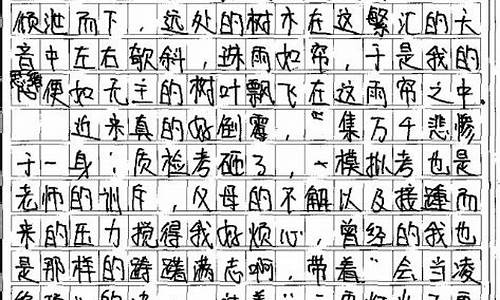 倾泄而下，远处的树木在这繁汇的天
音中左右欹斜，珠雨如帘，于是我的
思绪便如无主的树叶飘飞在这雨帘之中.
近来真的好倒霉，“集万千悲惨
于一身：质检考砸了，一模拟考也是
老师的训斥，父母的不解以及接踵而
来的压力搅得我好烦心，曾经的我也
是那样的踌躇满志啊，带着“会当凌